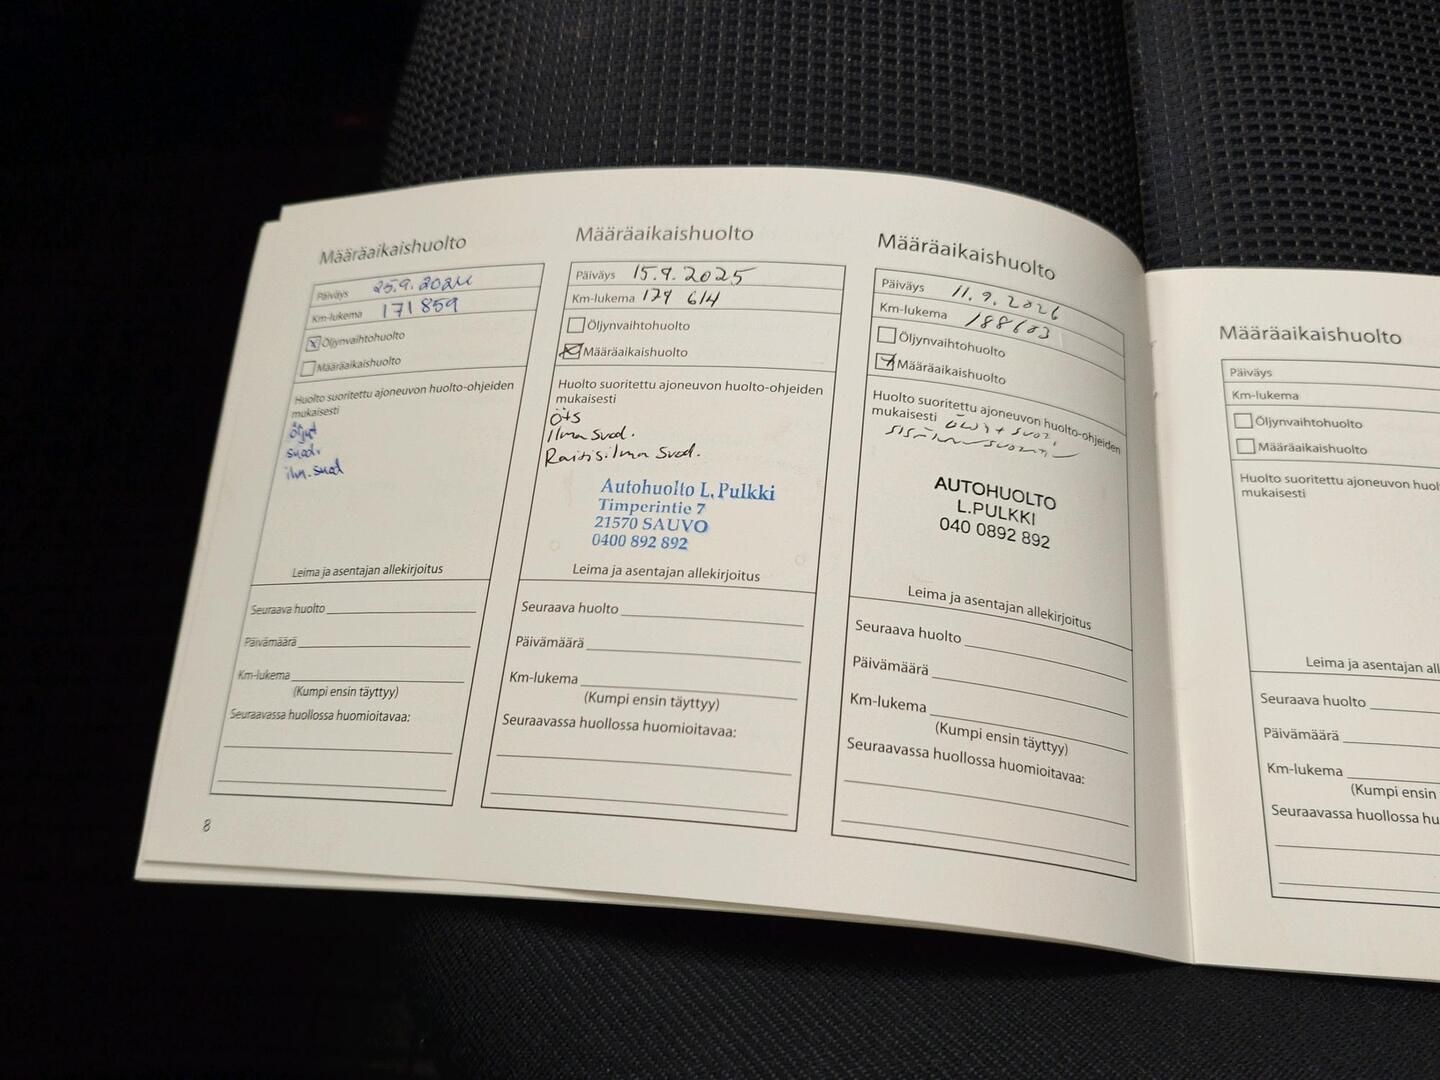 Määräaikaishuolto
Päiväys 25.9.2024
Km-lukema 171 859
Öljynvaihtohuolto
Määräaikaishuolto
Huolto suoritettu ajoneuvon huolto-ohjeiden
mukaisesti
öljyt
suod.
ilm. suod
Leima ja asentajan allekirjoitus
Seuraava huolto
Päivämäärä
Km-lukema
(Kumpi ensin täyttyy)
Seuraavassa huollossa huomioitavaa:
8
Määräaikaishuolto
Päiväys 15.9.2025
Km-lukema 179 614
Öljynvaihtohuolto
Määräaikaishuolto
Huolto suoritettu ajoneuvon huolto-ohjeiden
mukaisesti
Öts
Ilma suod.
Raitisilma suod.
Autohuolto L. Pulkki
Timperintie 7
21570 SAUVO
0400 892 892
Leima ja asentajan allekirjoitus
Seuraava huolto
Päivämäärä
Km-lukema
(Kumpi ensin täyttyy)
Seuraavassa huollossa huomioitavaa:
Määräaikaishuolto
Päiväys 11.9.2026
Km-lukema 188603
Öljynvaihtohuolto
Määräaikaishuolto
Huolto suoritettu ajoneuvon huolto-ohjeiden
mukaisesti
AUTOHUOLTO
L.PULKKI
040 0892 892
Leima ja asentajan allekirjoitus
Seuraava huolto
Päivämäärä
Km-lukema
(Kumpi ensin täyttyy)
Seuraavassa huollossa huomioitavaa:
Määräaikaishuolto
Päiväys
Km-lukema
Öljynvaihtohuolto
Määräaikaishuolto
Huolto suoritettu ajoneuvon huol
mukaisesti
Leima ja asentajan all
Seuraava huolto
Päivämäärä
Km-lukema
(Kumpi ensin
Seuraavassa huollossa hu